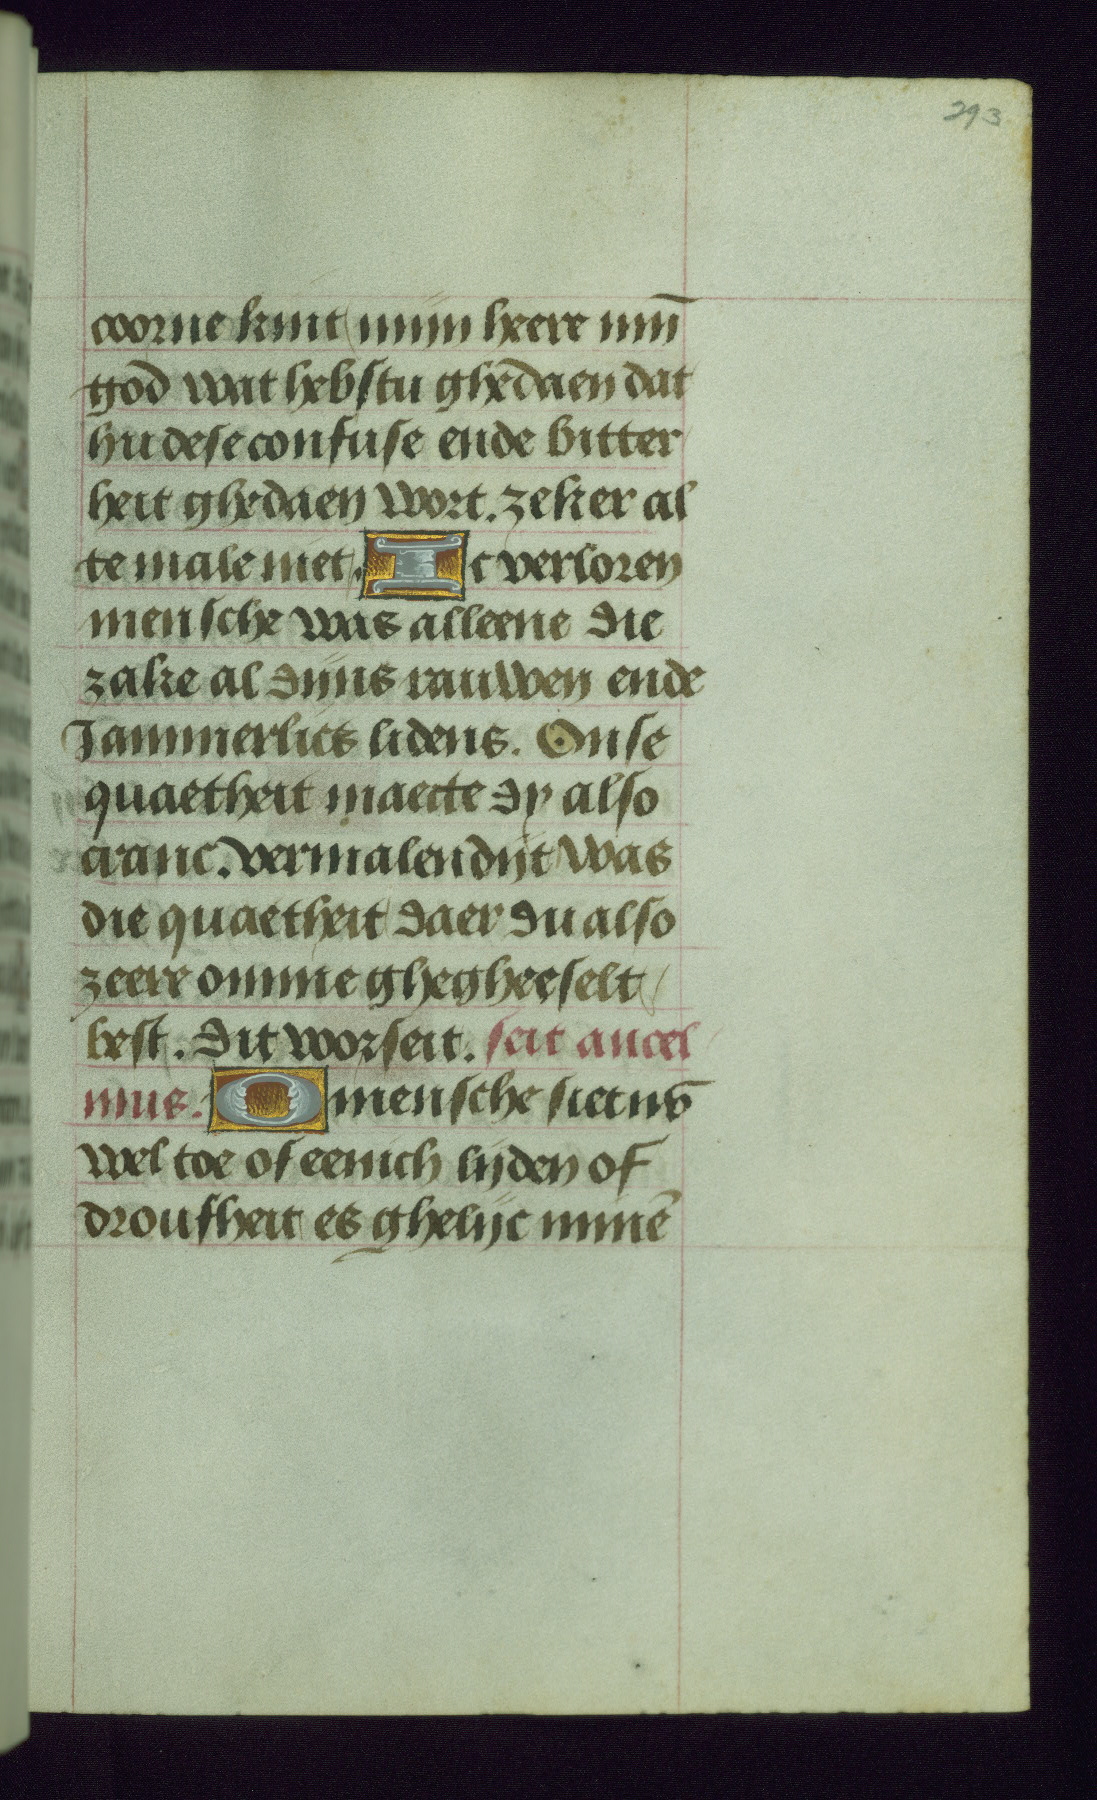 293
coorne kint mijn heere mīi
god wat hebstu ghedaen dat
hu dese confuse ende bitter
heit ghedaen wort. zeker al
te male niet. Ic verloren
mensche was alleene die
zake al dijns rauwen ende
Jammerlics lidens. Onse
quaetheit maecte dy also
cranc. vermalendijt was
die quaetheit daer du also
zeere omme ghegheeselt
best. dit worseit. seit ancel
mus. O mensche siet nv̄
wel toe of eenich lijden of
droufheit es ghelijc minē